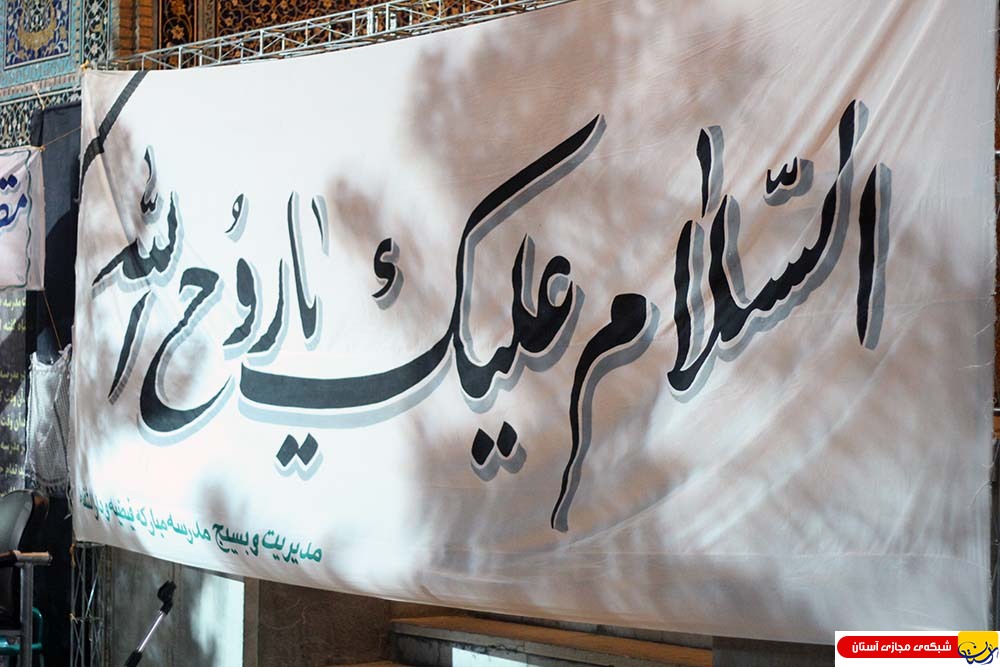 السّلام علیک یا روُح الله
مدیریت و بسیج مدرسه مبارکه فیضیه و دارالشفاء
شبکه‌ی مجازی آستان